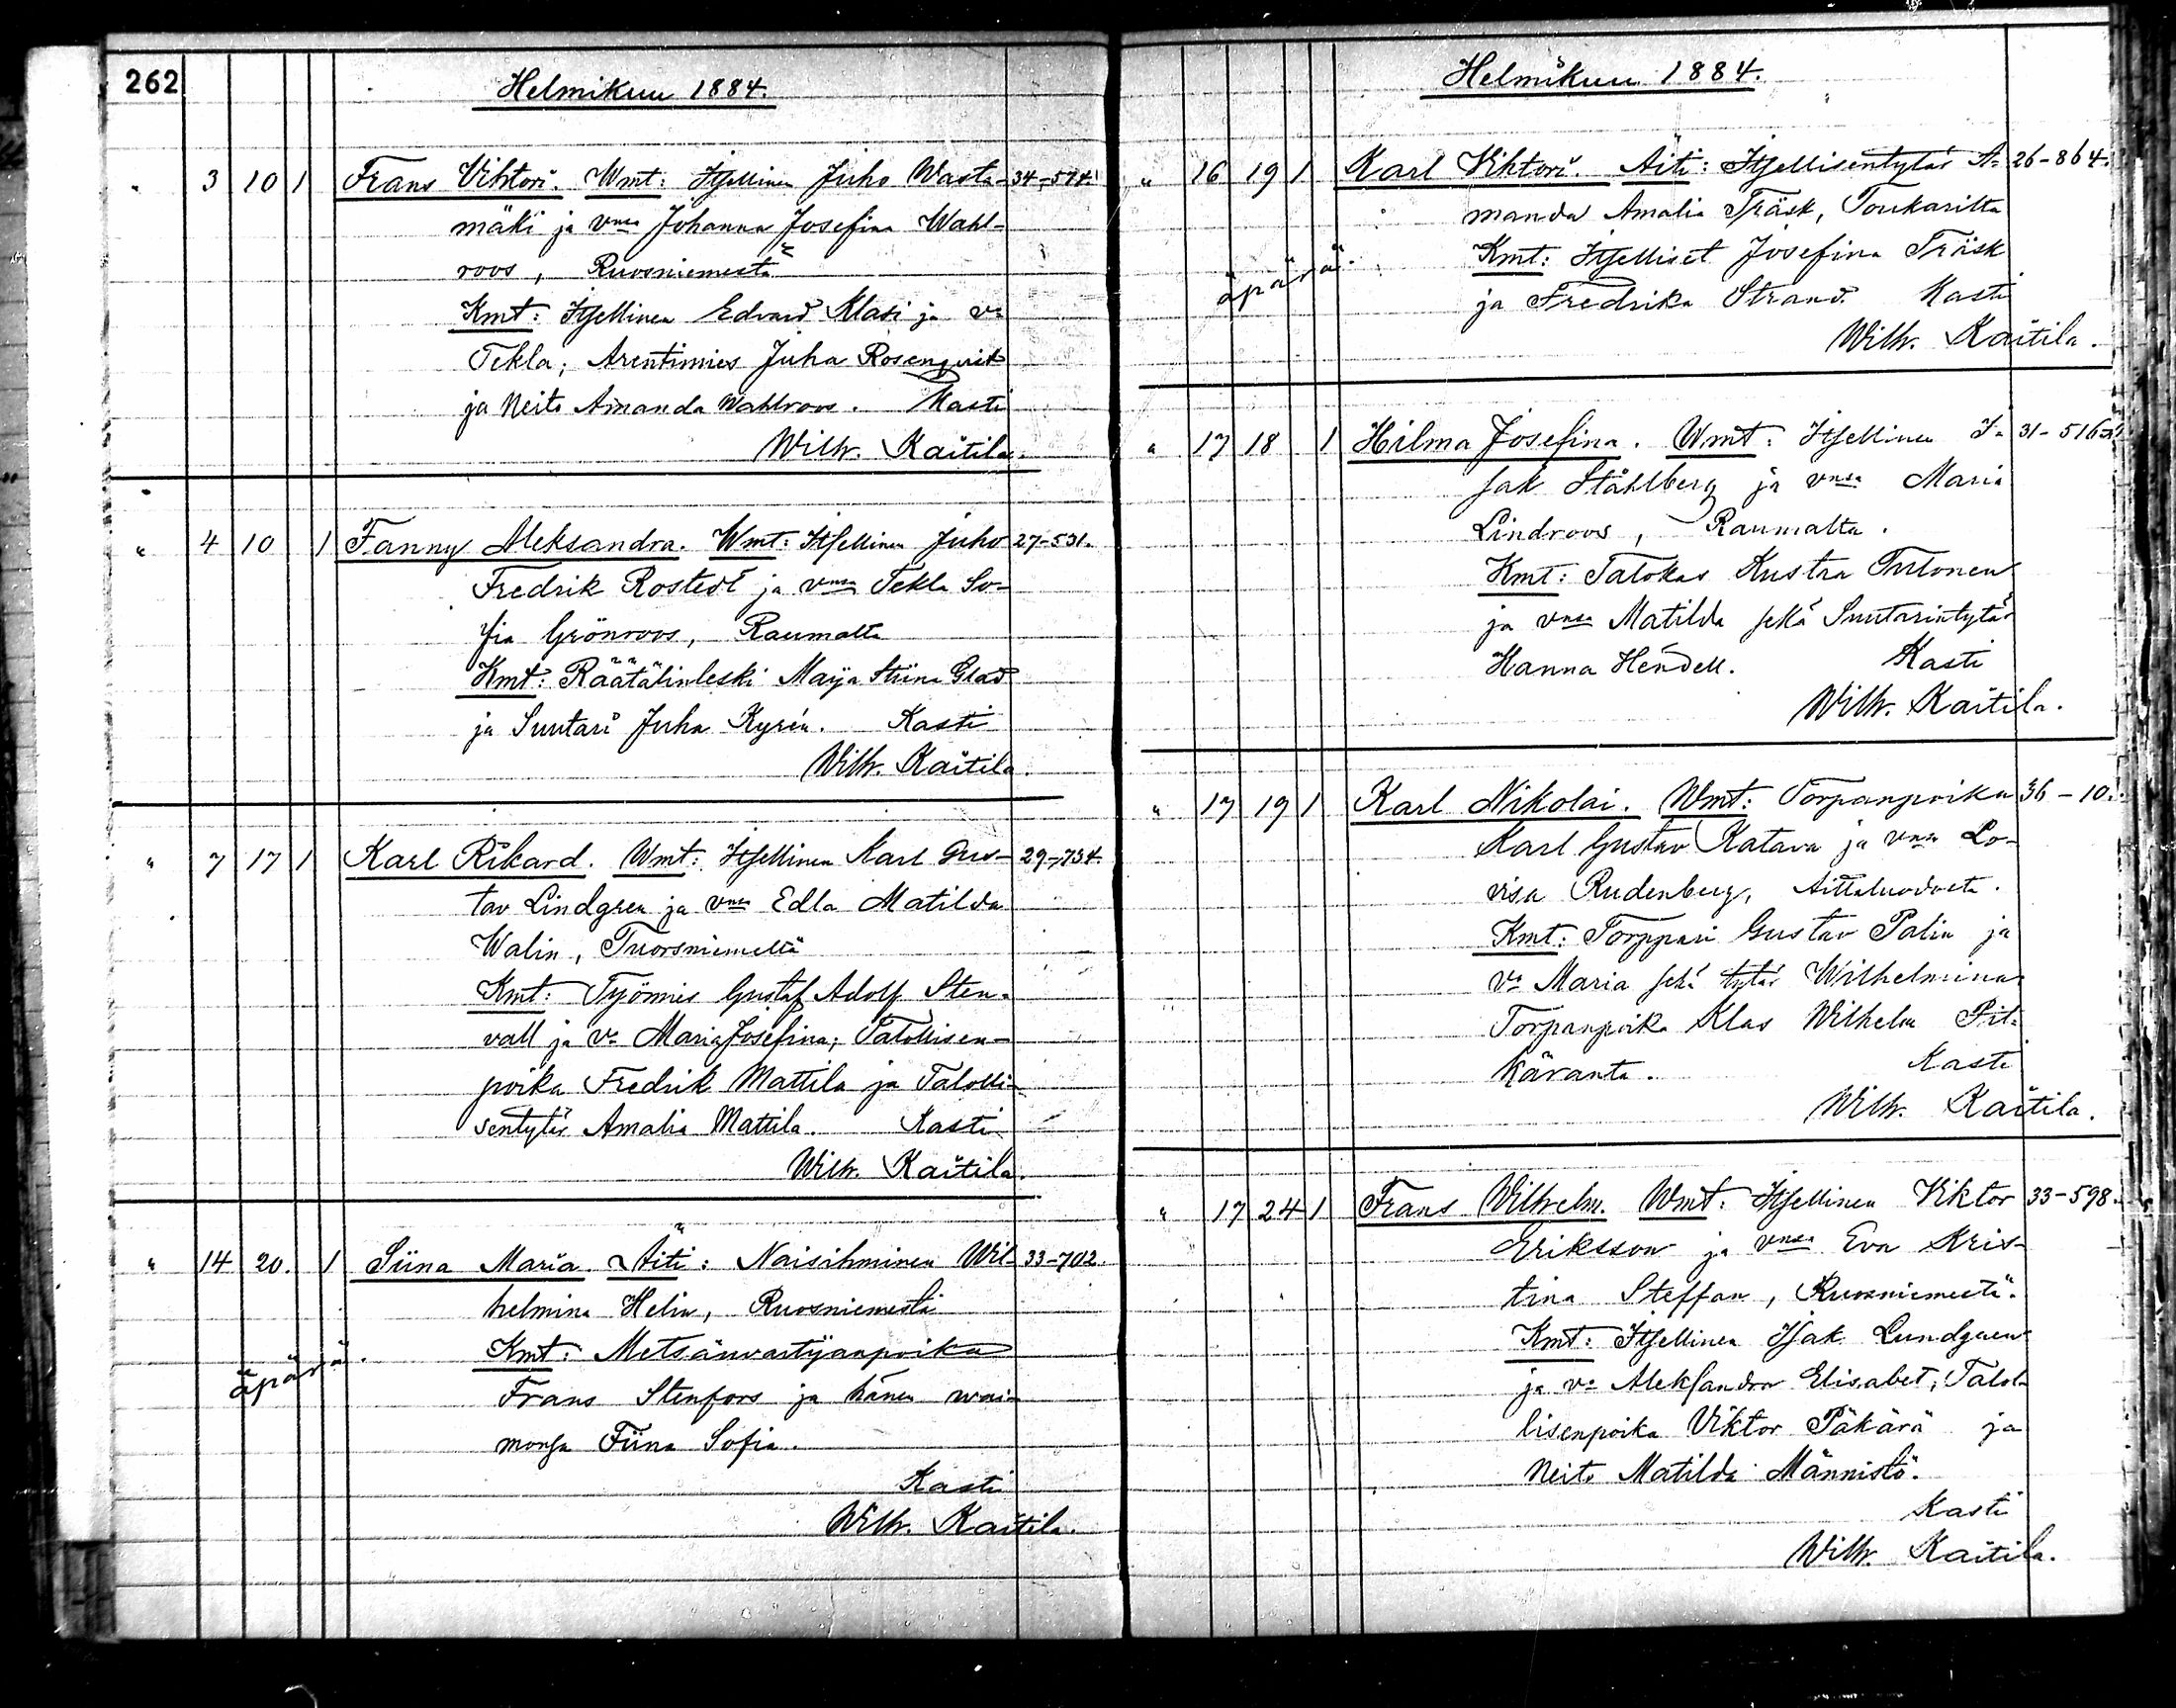 262
Helmikuu 1884.
" 3 10 1 Frans Vihtori. Wmt: Itsellinen Juho Wasta- 34-574.
mäki ja vmsa Johanna Josefina Wahl-
roos, Ruosniemestä
Kmt: Itsellinen Edvard Klasi ja va
Tekla; Arentimies Juha Rosenqvist
ja Neito Amanda Wahlroos. Kasti
Wilh. Kaitila.
" 4 10 1 Fanny Aleksandra. Wmt: Itsellinen Juho 27-531.
Fredrik Rostedt ja vmsa Tekla So-
fia Grönroos, Raumalta
Kmt: Räätälinleski Maija Stiina Glad
ja Suutari Juha Kyrén. Kasti
Wilh. Kaitila.
" 7 17 1 Karl Rikard. Wmt: Itsellinen Karl Gus- 29-734.
tav Lindgren ja vmsa Edla Matilda
Walin, Tuorsniemeltä
Kmt: Työmies Gustaf Adolf Sten-
vall ja va Maria Josefina; Talollisen-
poika Fredrik Mattila ja Talolli-
sentytär Amalia Mattila. Kasti
Wilh. Kaitila.
" 14 20. 1 Siina Maria. Äiti: Naisihminen Wil- 33-702.
helmina Helin, Ruosniemestä
äpärä. Kmt: Metsänvartijanpoika
Frans Stenfors ja hänen wai-
monsa Fiina Sofia.
Kasti
Wilh. Kaitila.
Helmikuu 1884.
" 16 19 1 Karl Vihtori. Äiti: Itsellisentytär A- 26-864.
manda Amalia Träsk, Toukarilta
äpärä. Kmt: Itselliset Josefina Träsk
ja Fredrika Strand. Kasti
Wilh. Kaitila.
" 17 18 1 Hilma Josefina. Wmt: Itsellinen I- 31-516
sak Ståhlberg ja vmsa Maria
Lindroos, Raumalta.
Kmt: Talokas Kustaa Tuitonen
ja vmsa Matilda sekä Suutarintytär
Hanna Hendell. Kasti
Wilh. Kaitila.
" 17 19 1 Karl Nikolai. Wmt: Torpanpoika 36-10.
Karl Gustav Katava ja vmsa Lo-
visa Rudenberg, Aittaluodosta.
Kmt: Torppari Gustav Palin ja
va Maria sekä tytär Wilhelmina
Torpanpoika Klas Wilhelm Pit-
käranta. Kasti
Wilh. Kaitila.
" 17 24 1 Frans Wilhelm. Wmt: Itsellinen Viktor 33-598.
Eriksson ja vmsa Eva Kris-
tina Steffan, Ruosniemestä.
Kmt: Itsellinen Isak Lundgren
ja va Aleksandra Elisabet; Talol-
lisenpoika Viktor Päkärä ja
Neito Matilda Männistö.
Kasti
Wilh. Kaitila.